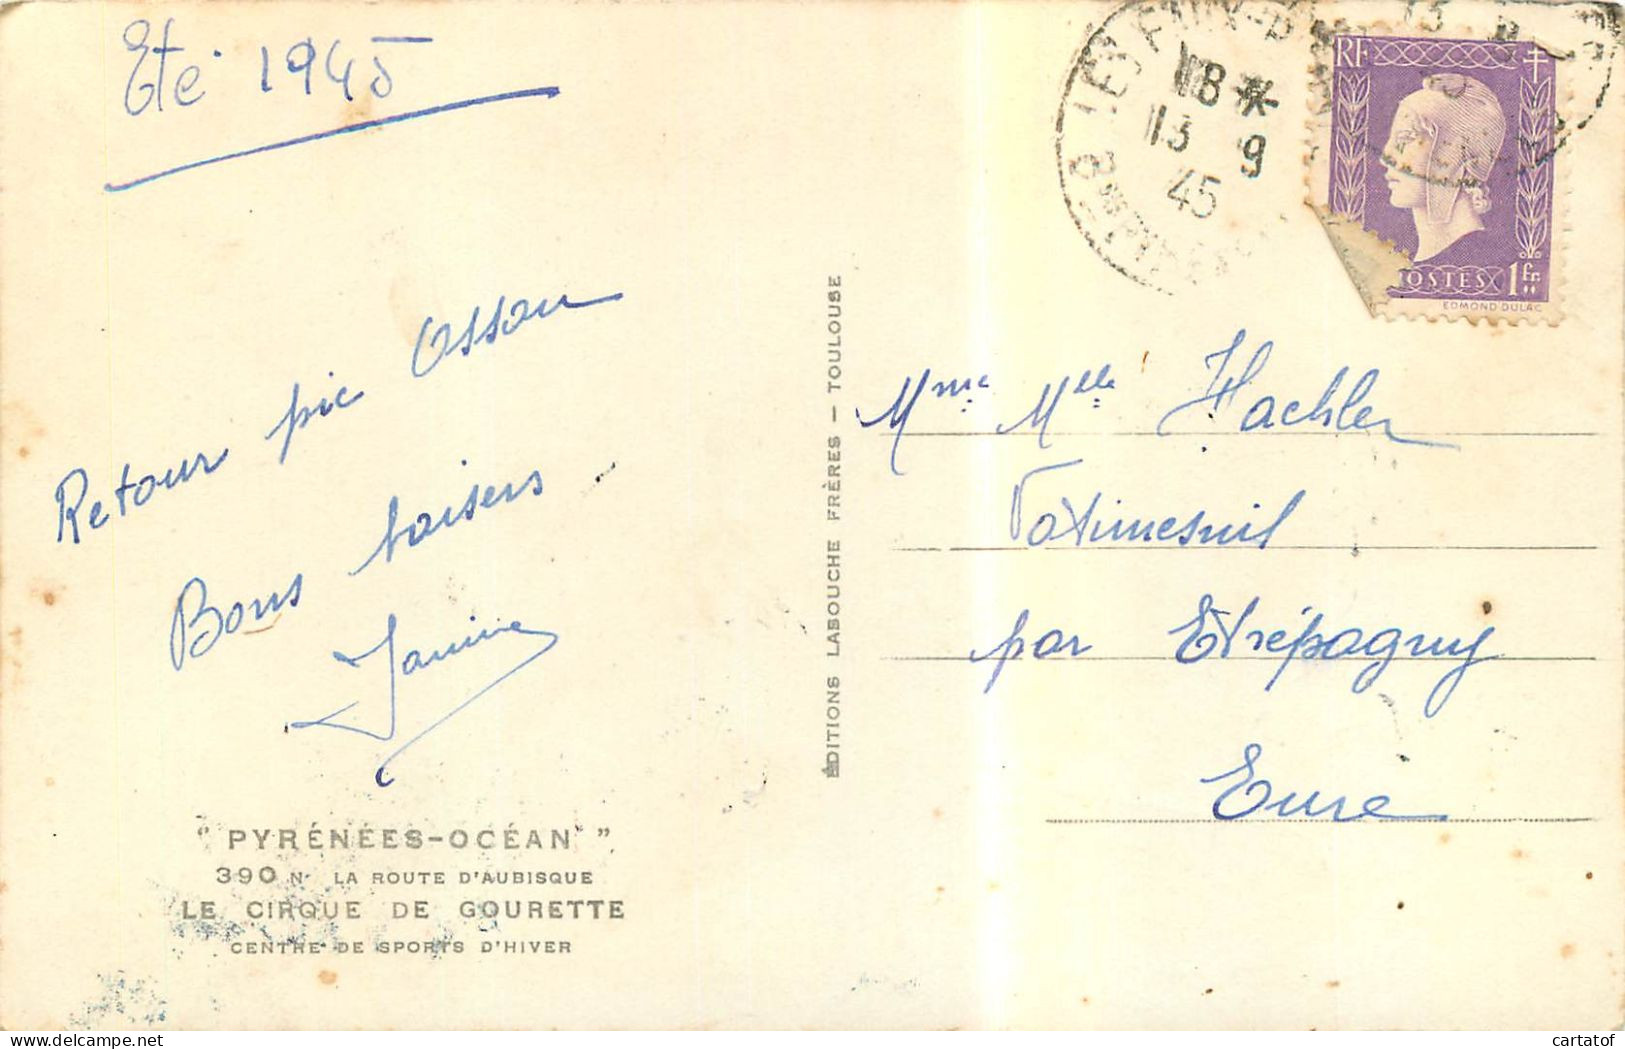 Eté 1945
Retour pic Ossau
Bons baisers
Janine
"PYRÉNÉES-OCÉAN"
390 N LA ROUTE D'AUBISQUE
LE CIRQUE DE GOURETTE
CENTRE DE SPORTS D'HIVER
ÉDITIONS LABOUCHE FRÈRES — TOULOUSE
LES EAUX-B
18 *
13 9
45
Bses PYRÉNÉES
RF
POSTES 1fr.
EDMOND DULAC
Mme Mlle Hachler
Vatimesnil
par Etrépagny
Eure
cartatof